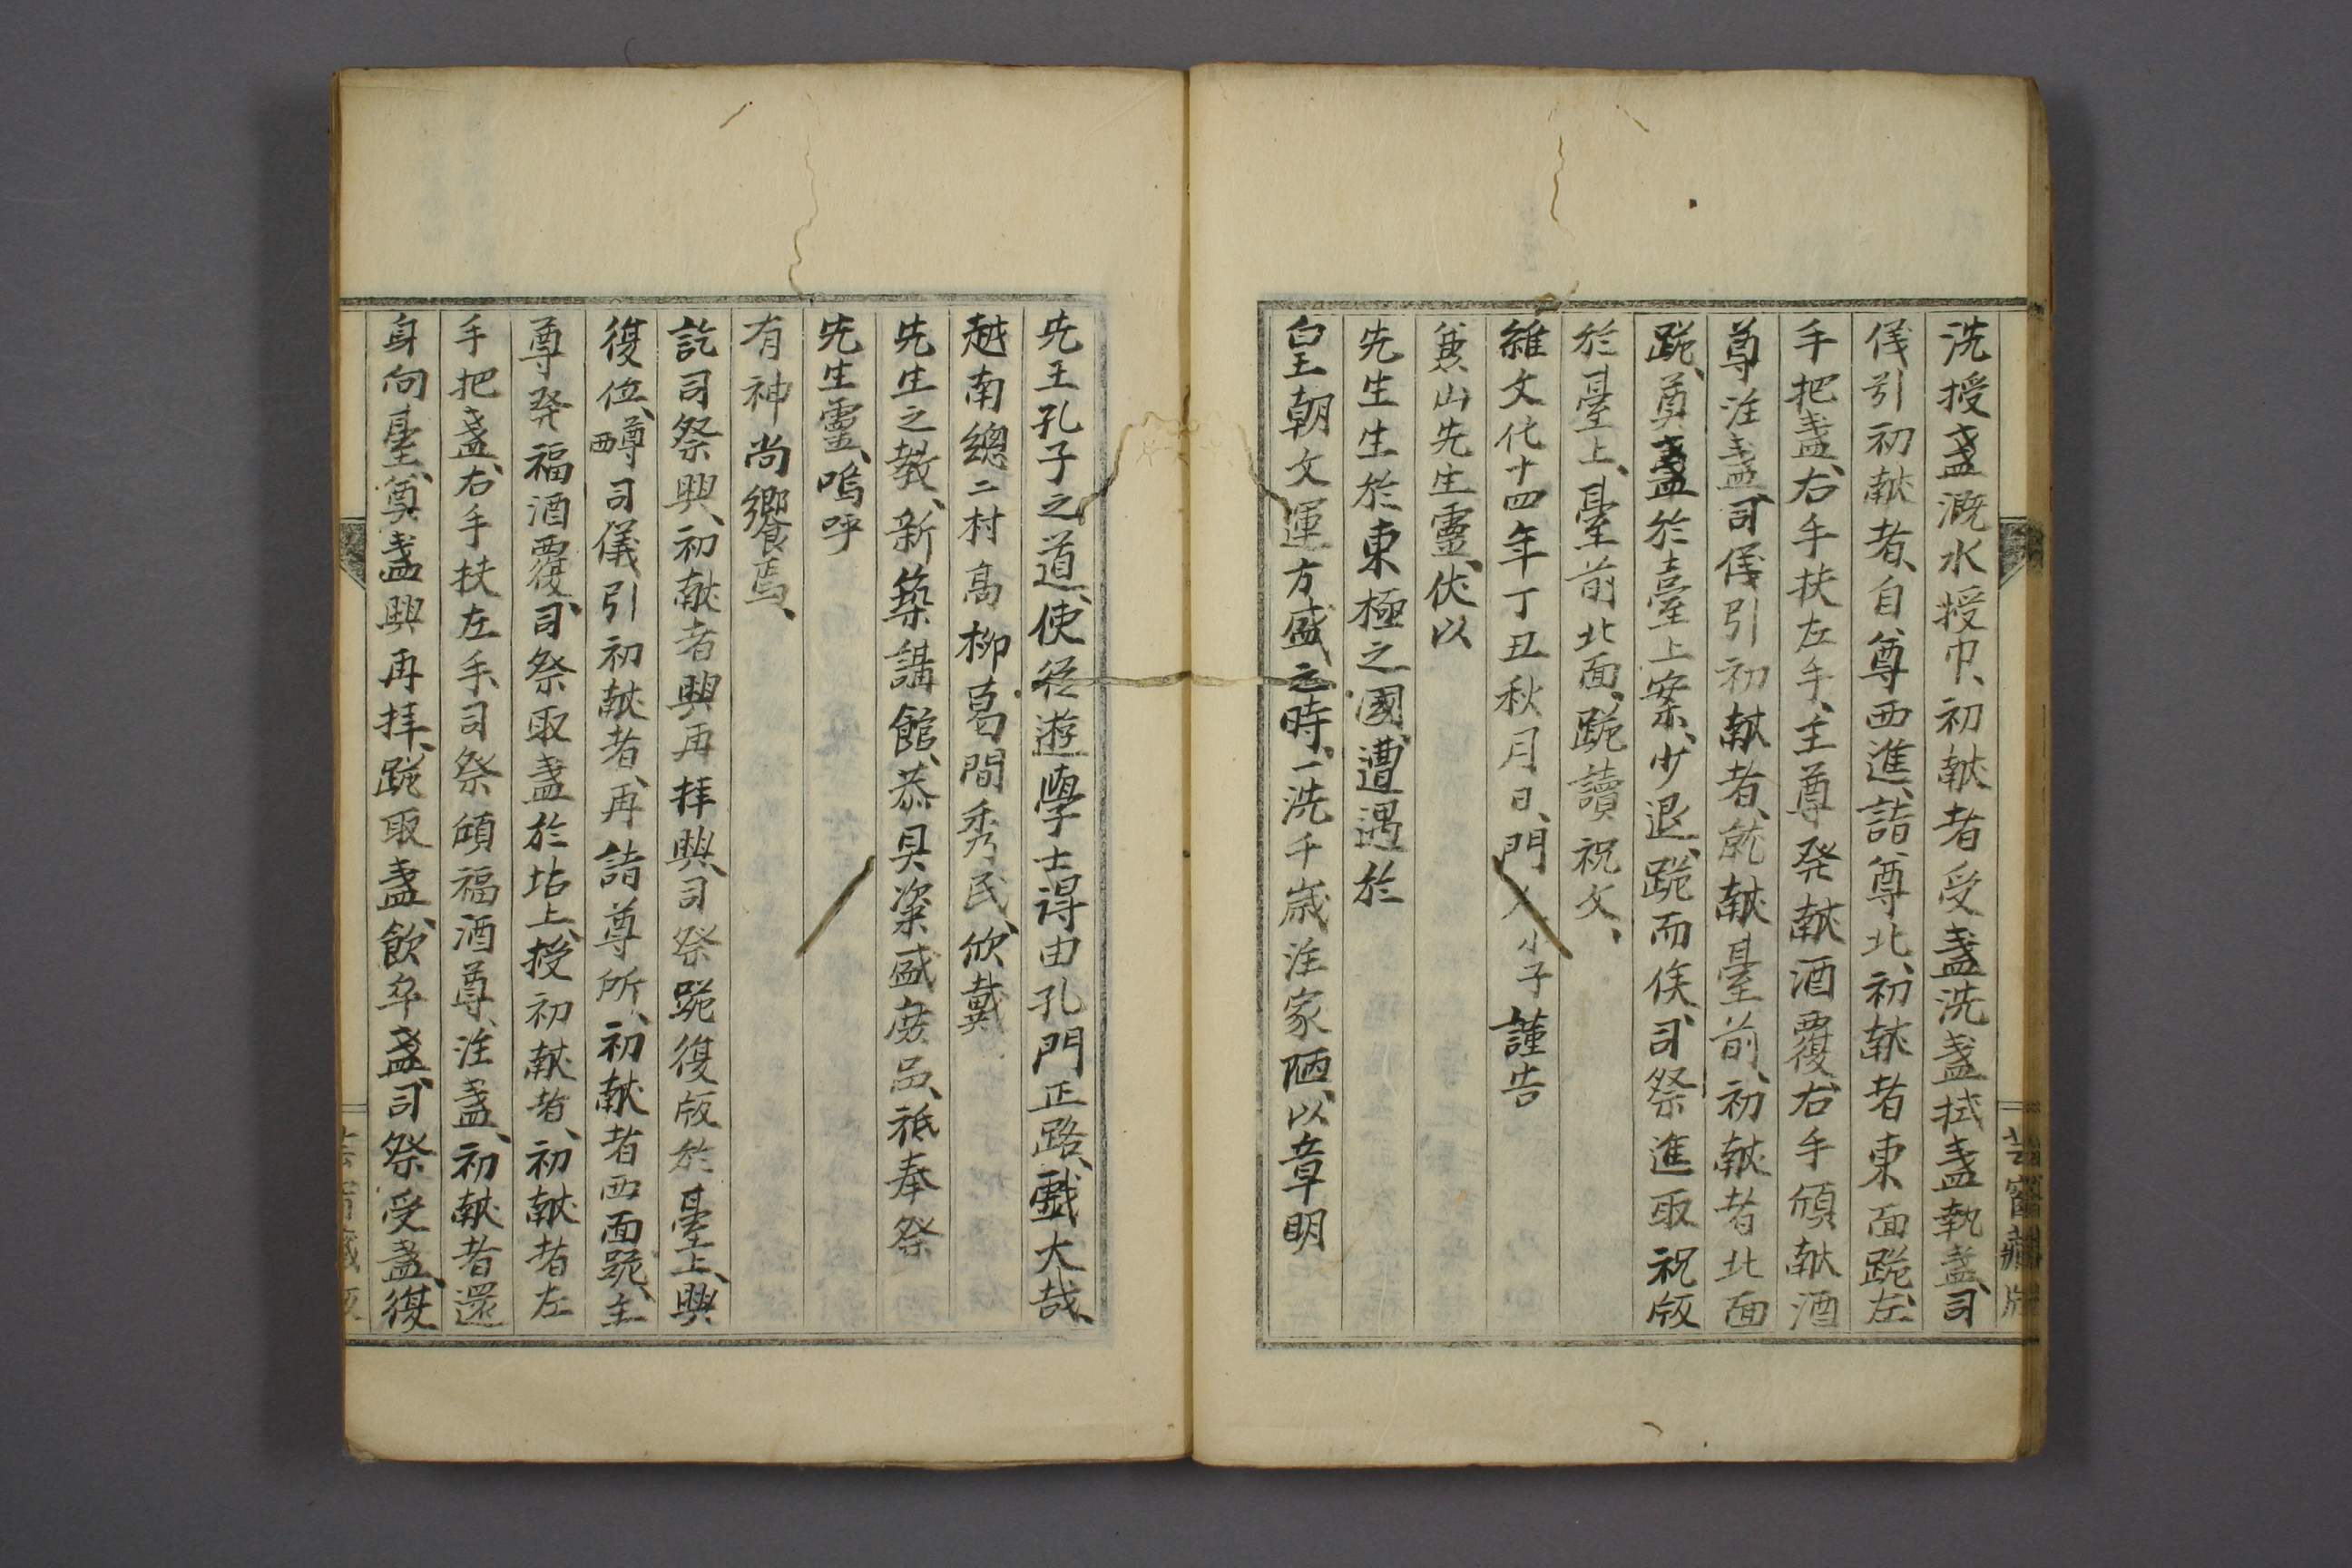 洗授盞溉水授巾、初献者受盞洗盞拭盞執盞、司
儀引初献者、自尊西進、詣尊北、初献者東面跪、左
手把盞、右手扶左手、主尊発献酒覆、右手傾献酒
尊注盞、司儀引初献者、就献臺前、初献者北面
跪、奠盞於臺上案、少退、跪而俟、司祭進取祝版
於臺上、臺前北面、跪讀祝文、
維文化十四年丁丑秋月日、門人小子謹告
兼山先生靈、伏以
先生生於東極之國、遭遇於
皇朝文運方盛之時、一洗千歳注家陋、以章明
芸窗藏版
先王孔子之道、使後遊學士得由孔門正路、戲大哉、
越南總二村高柳葛間秀民、欣戴
先生之教、新築講館、恭具粢盛庶品、祗奉祭
先生靈、嗚呼
有神尚饗焉、
訖司祭興、初献者興再拝興、司祭跪復版於臺上、興
復位、西尊司儀引初献者、再詣尊所、初献者西面跪、主
尊発福酒覆、司祭取盞於坫上、授初献者、初献者左
手把盞、右手扶左手、司祭傾福酒尊、注盞、初献者還
身向臺、奠盞興再拝、跪取盞、飲卒盞、司祭受盞、復